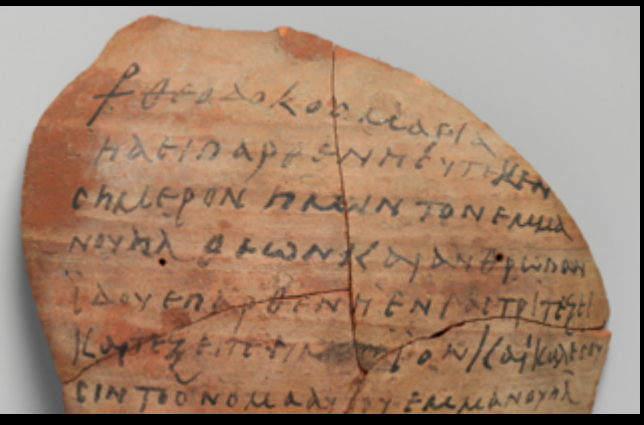 ⳨ θεοδοκος μαρια
η αει παρθεν η ευτεκεν
σημερον ημων τον εμμα
νουηλ θεων και ανθρωπον
ϊδου ε παρθεν η εν γαστρι τεξει
και τεξ
σιν το ονομα αυτου εμμανουηλ